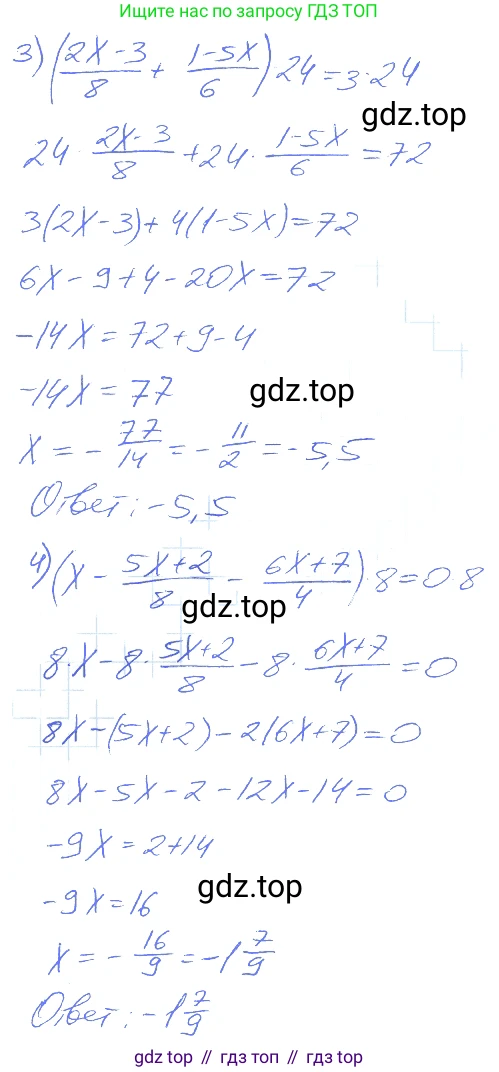 Ищите нас по запросу ГДЗ ТОП
3) ((2x-3)/8 + (1-5x)/6)·24=3·24
gdz.top
24·(2x-3)/8+24·(1-5x)/6=72
3(2x-3)+4(1-5x)=72
6x-9+4-20x=72
-14x=72+9-4
-14x=77
gdz.top
x=-77/14=-11/2=-5,5
Ответ: -5,5
4) (x-(5x+2)/8-(6x+7)/4)·8=0·8
gdz.top
8·x-8·(5x+2)/8-8·(6x+7)/4=0
8x-(5x+2)-2(6x+7)=0
8x-5x-2-12x-14=0
-9x=2+14
-9x=16
gdz.top
x=-16/9=-1 7/9
Ответ: -1 7/9
gdz top // гдз топ // gdz.top